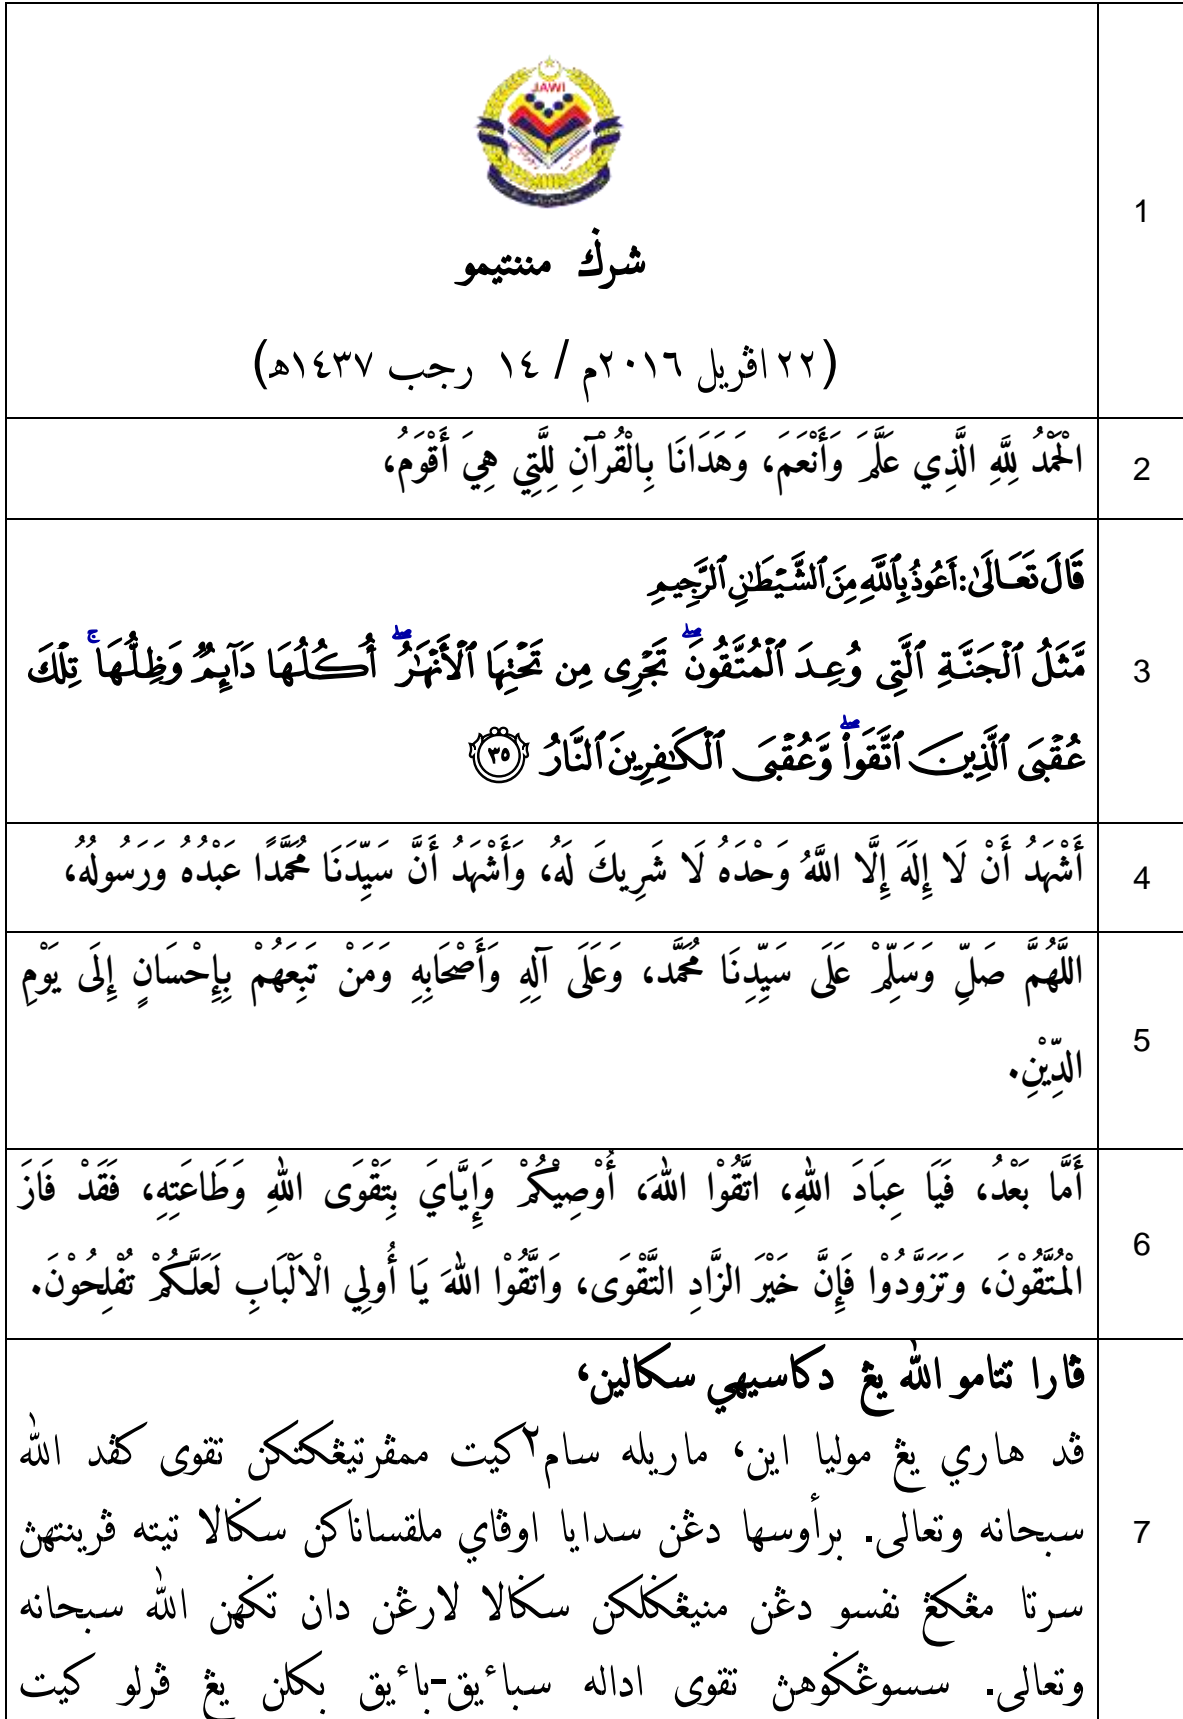 JAWI
شرݢ مننتيمو
(٢٢ اڤريل ٢٠١٦م / ١٤ رجب ١٤٣٧هـ)
1
الْحَمْدُ لِلَّهِ الَّذِي عَلَّمَ وَأَنْعَمَ، وَهَدَانَا بِالْقُرْآنِ لِلَّتِي هِيَ أَقْوَمُ،
2
قَالَ تَعَالَىٰ: أَعُوذُ بِٱللَّهِ مِنَ ٱلشَّيْطَٰنِ ٱلرَّجِيمِ
مَّثَلُ ٱلْجَنَّةِ ٱلَّتِى وُعِدَ ٱلْمُتَّقُونَ ۖ تَجْرِى مِن تَحْتِهَا ٱلْأَنْهَٰرُ ۖ أُكُلُهَا دَآئِمٌ وَظِلُّهَا ۚ تِلْكَ
عُقْبَى ٱلَّذِينَ ٱتَّقَوا۟ ۖ وَّعُقْبَى ٱلْكَٰفِرِينَ ٱلنَّارُ ٣٥
3
أَشْهَدُ أَنْ لَا إِلَهَ إِلَّا اللَّهُ وَحْدَهُ لَا شَرِيكَ لَهُ، وَأَشْهَدُ أَنَّ سَيِّدَنَا مُحَمَّدًا عَبْدُهُ وَرَسُولُهُ،
4
اللَّهُمَّ صَلِّ وَسَلِّمْ عَلَى سَيِّدِنَا مُحَمَّد، وَعَلَى آلِهِ وَأَصْحَابِهِ وَمَنْ تَبِعَهُمْ بِإِحْسَانٍ إِلَى يَوْمِ
الدِّيْنِ.
5
أَمَّا بَعْدُ، فَيَا عِبَادَ اللهِ، اتَّقُوْا اللهَ، أُوْصِيْكُمْ وَإِيَّايَ بِتَقْوَى اللهِ وَطَاعَتِهِ، فَقَدْ فَازَ
الْمُتَّقُوْنَ، وَتَزَوَّدُوْا فَإِنَّ خَيْرَ الزَّادِ التَّقْوَى، وَاتَّقُوْا اللهَ يَا أُولِي الْاَلْبَابِ لَعَلَّكُمْ تُفْلِحُوْنَ.
6
ڤارا تتامو الله يڠ دكاسيهي سكالين،
ڤد هاري يڠ موليا اين، ماريله سام٢ كيت ممڤرتيڠكتكن تقوى كڤد الله
سبحانه وتعالى. برأوسها دڠن سدايا اوڤاي ملقساناكن سݢالا تيته ڤرينتهڽ
سرتا مڠكڠ نفسو دڠن منيڠݢلكن سݢالا لارڠن دان تݢهن الله سبحانه
وتعالى. سسوڠݢوهڽ تقوى اداله سباءيق-باءيق بكلن يڠ ڤرلو كيت
7